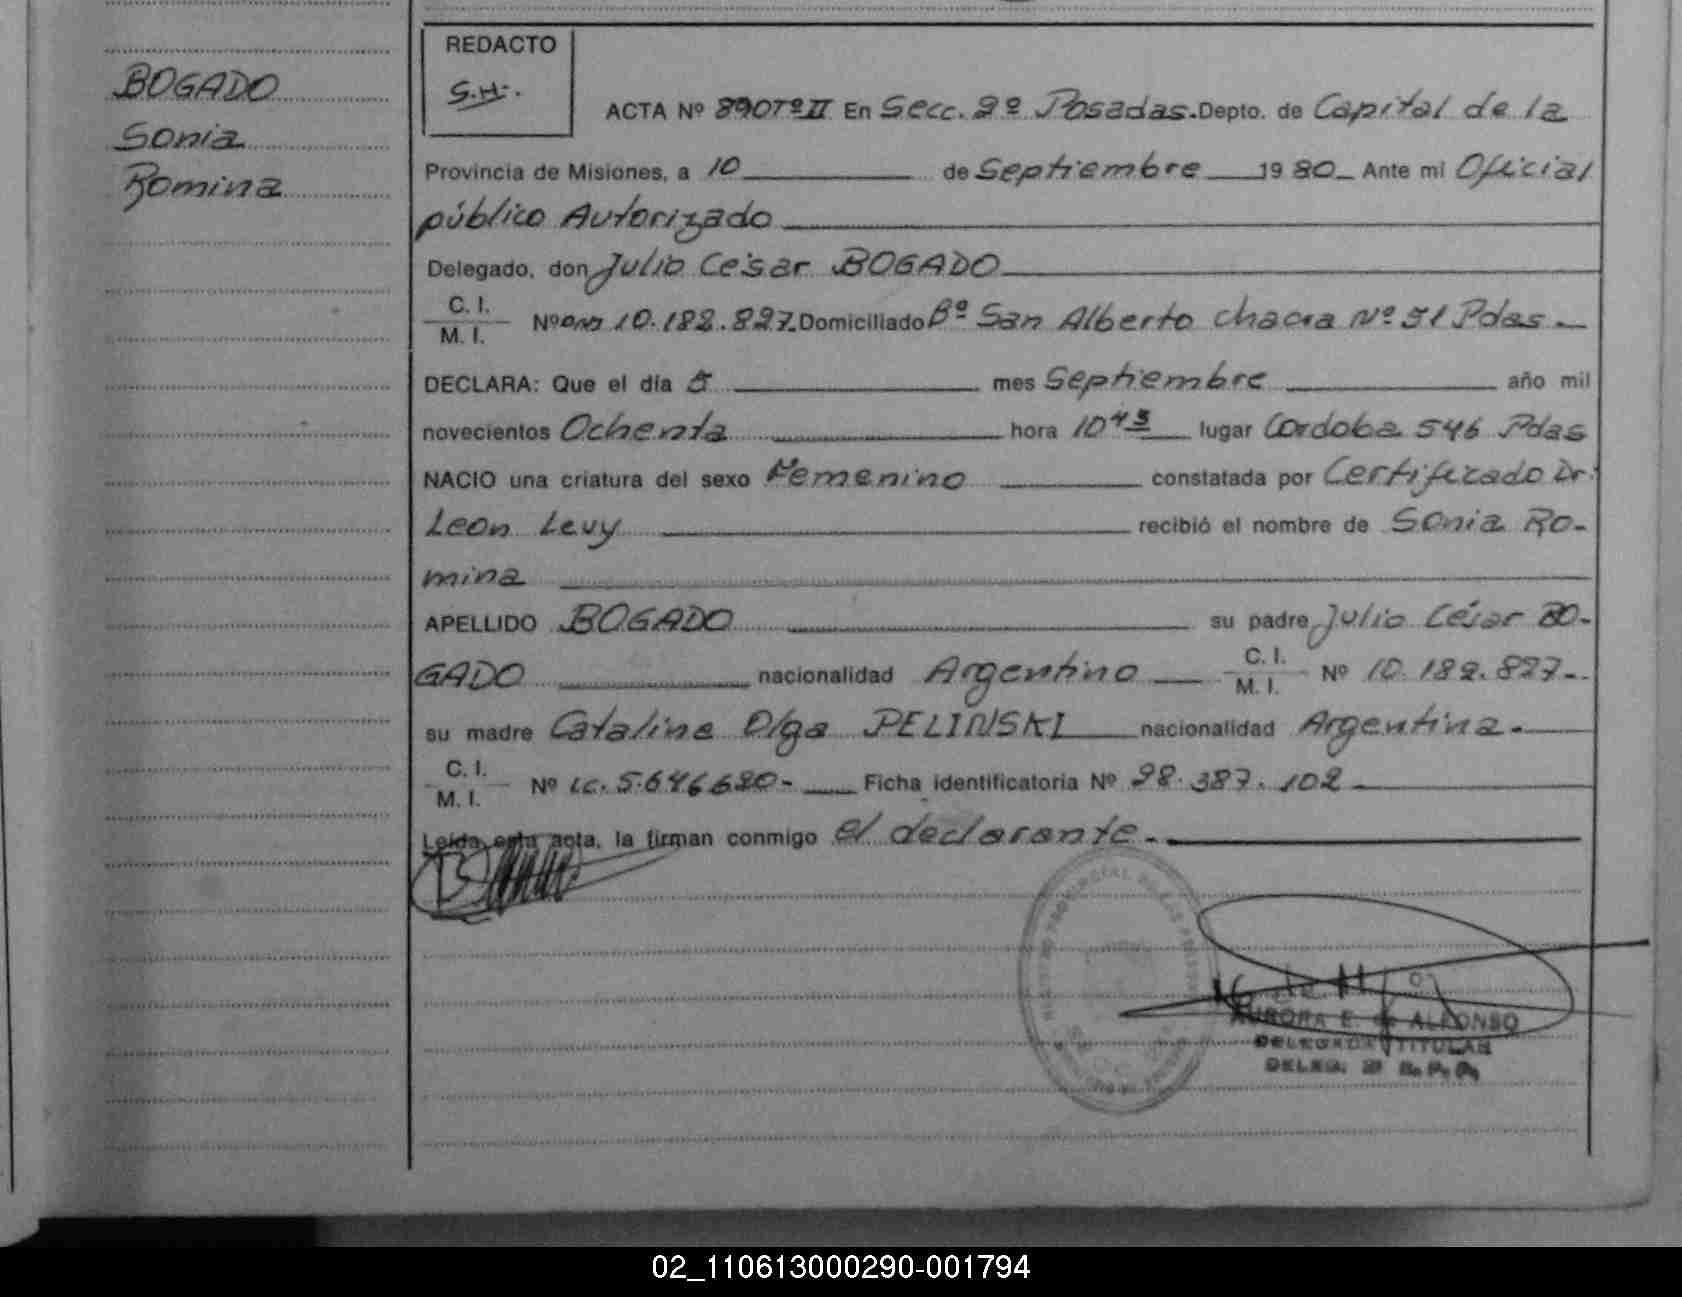 BOGADO
Sonia
Romina
REDACTO
S.H.
ACTA Nº 890Tº II En Secc. 2º Posadas. Depto. de Capital de la
Provincia de Misiones, a 10 de Septiembre 1980 Ante mi Oficial
público Autorizado
Delegado, don Julio César BOGADO
C. I.
M. I. Nº DNI 10.182.827. Domiciliado Bº San Alberto chacra Nº 51 Pdas
DECLARA: Que el día 5 mes Septiembre año mil
novecientos Ochenta hora 10 45 lugar Cordoba 546 Pdas
NACIO una criatura del sexo Femenino constatada por Certificado Dr.
Leon Levy recibió el nombre de Sonia Ro-
mina
APELLIDO BOGADO su padre Julio César BO-
GADO nacionalidad Argentino C. I.
M. I. Nº 10.182.827-.
su madre Catalina Olga PELINSKI nacionalidad Argentina.
C. I.
M. I. Nº LC. 5.646.620- Ficha identificatoria Nº 28.387.102
Leída esta acta, la firman conmigo el declarante.-
AURORA E. de ALFONSO
DELEGADA TITULAR
DELEG. 2ª R. P. P.
02_110613000290-001794